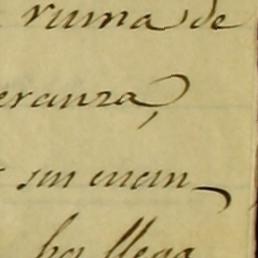 ruina de
eranza,
sin cuan-
ha llega